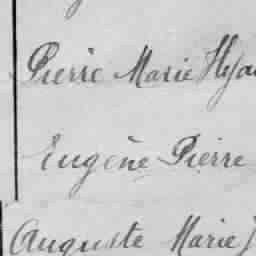 Pierre Marie Hya
Eugène Pierre
Auguste Marie J